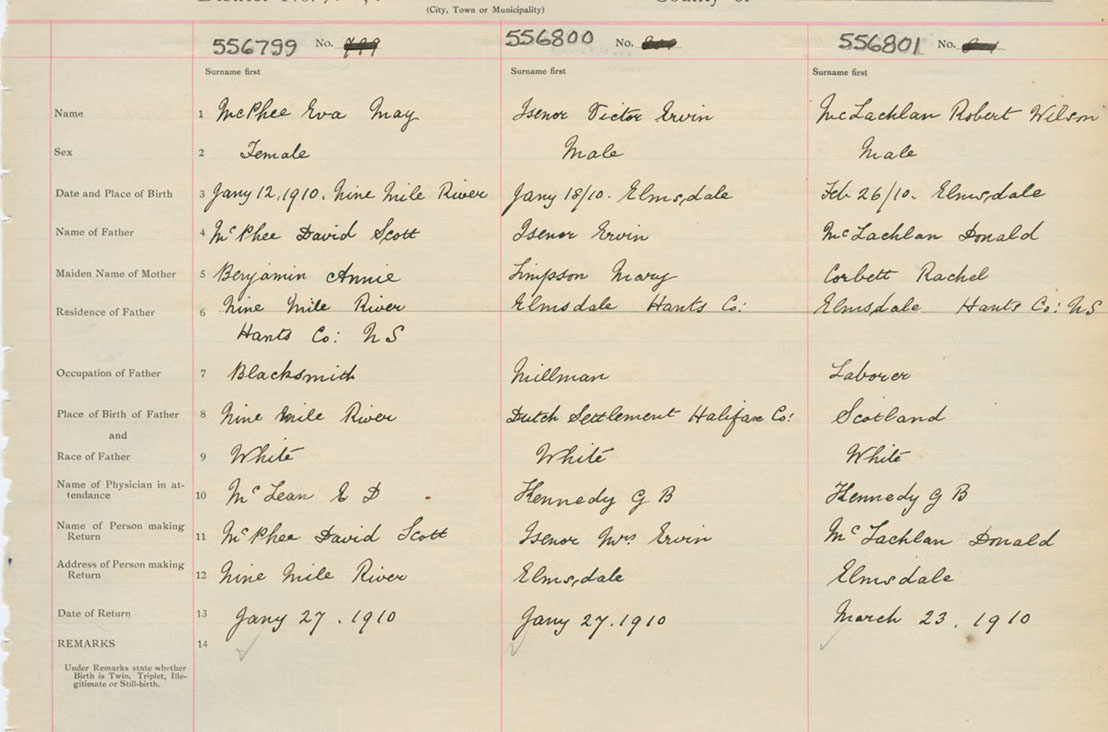 (City, Town or Municipality)
556799 No. 799 556800 No. 801 556801 No.
Surname first Surname first Surname first
Name 1 McPhee Eva May Isenor Victor Ervin McLachlan Robert Wilson
Sex 2 Female Male Male
Date and Place of Birth 3 Jany 12, 1910. Nine Mile River Jany 18/10. Elmsdale Feb 26/10. Elmsdale
Name of Father 4 McPhee David Scott Isenor Ervin McLachlan Donald
Maiden Name of Mother 5 Benjamin Annie Simpson Mary Corbett Rachel
Residence of Father 6 Nine Mile River Elmsdale Hants Co: Elmsdale Hants Co: NS
Hants Co: NS
Occupation of Father 7 Blacksmith Millman Laborer
Place of Birth of Father 8 Nine Mile River Dutch Settlement Halifax Co: Scotland
and
Race of Father 9 White White White
Name of Physician in at-
tendance 10 McLean E D Kennedy G B Kennedy G B
Name of Person making
Return 11 McPhee David Scott Isenor Mrs Ervin McLachlan Donald
Address of Person making
Return 12 Nine Mile River Elmsdale Elmsdale
Date of Return 13 Jany 27. 1910 Jany 27. 1910 March 23. 1910
REMARKS 14
Under Remarks state whether
Birth is Twin, Triplet, Ille-
gitimate or Still-birth.